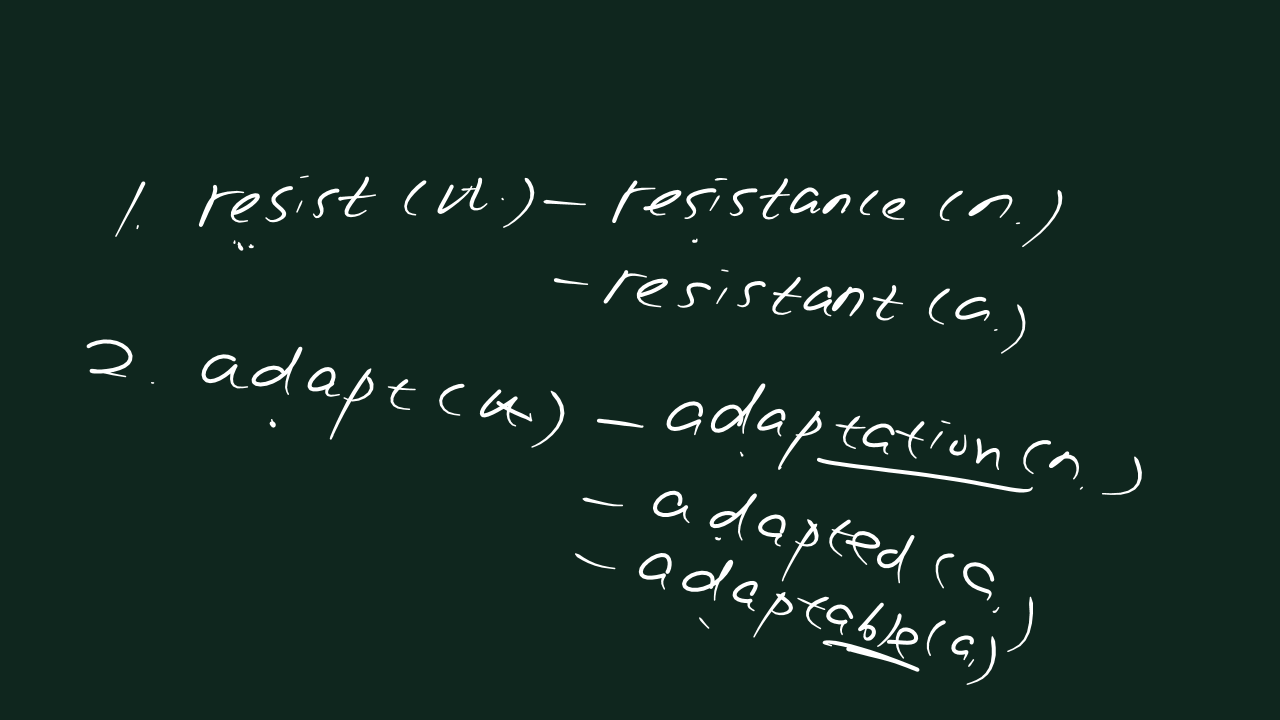 1. resist (vt.) - resistance (n.)
- resistant (a.)
2. adapt (vt.) - adaptation (n.)
- adapted (a.)
- adaptable (a.)